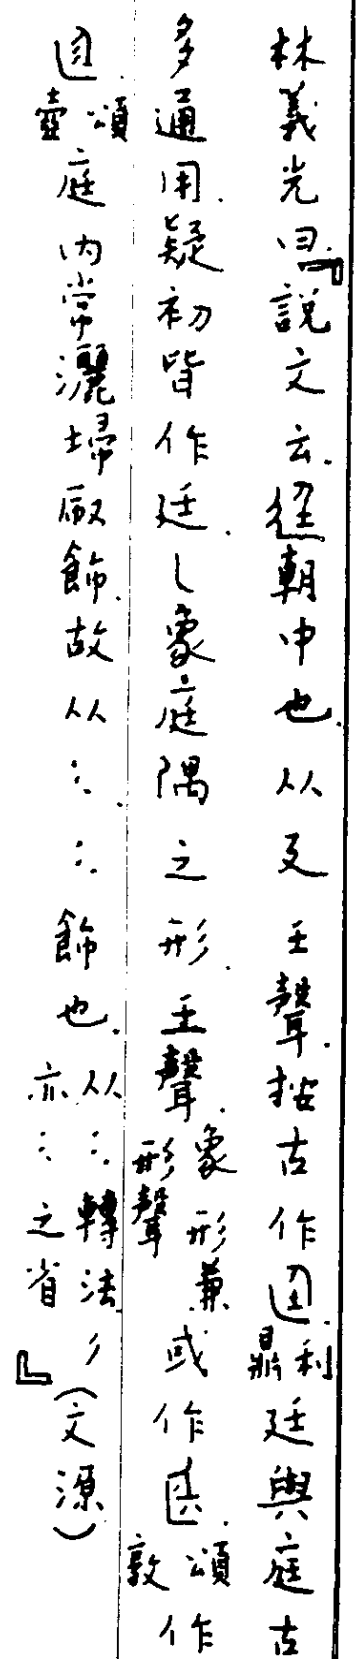 林義光曰『說文云廷朝中也从廴𡈼聲按古作利鼎廷與庭古
多通用疑初皆作廷乚象庭隅之形𡈼聲象形兼形聲或作頌敦作
頌壺庭內常灑埽㕞飾故从⺀⺀飾也从⺀轉注亦⺀之省』(文源)